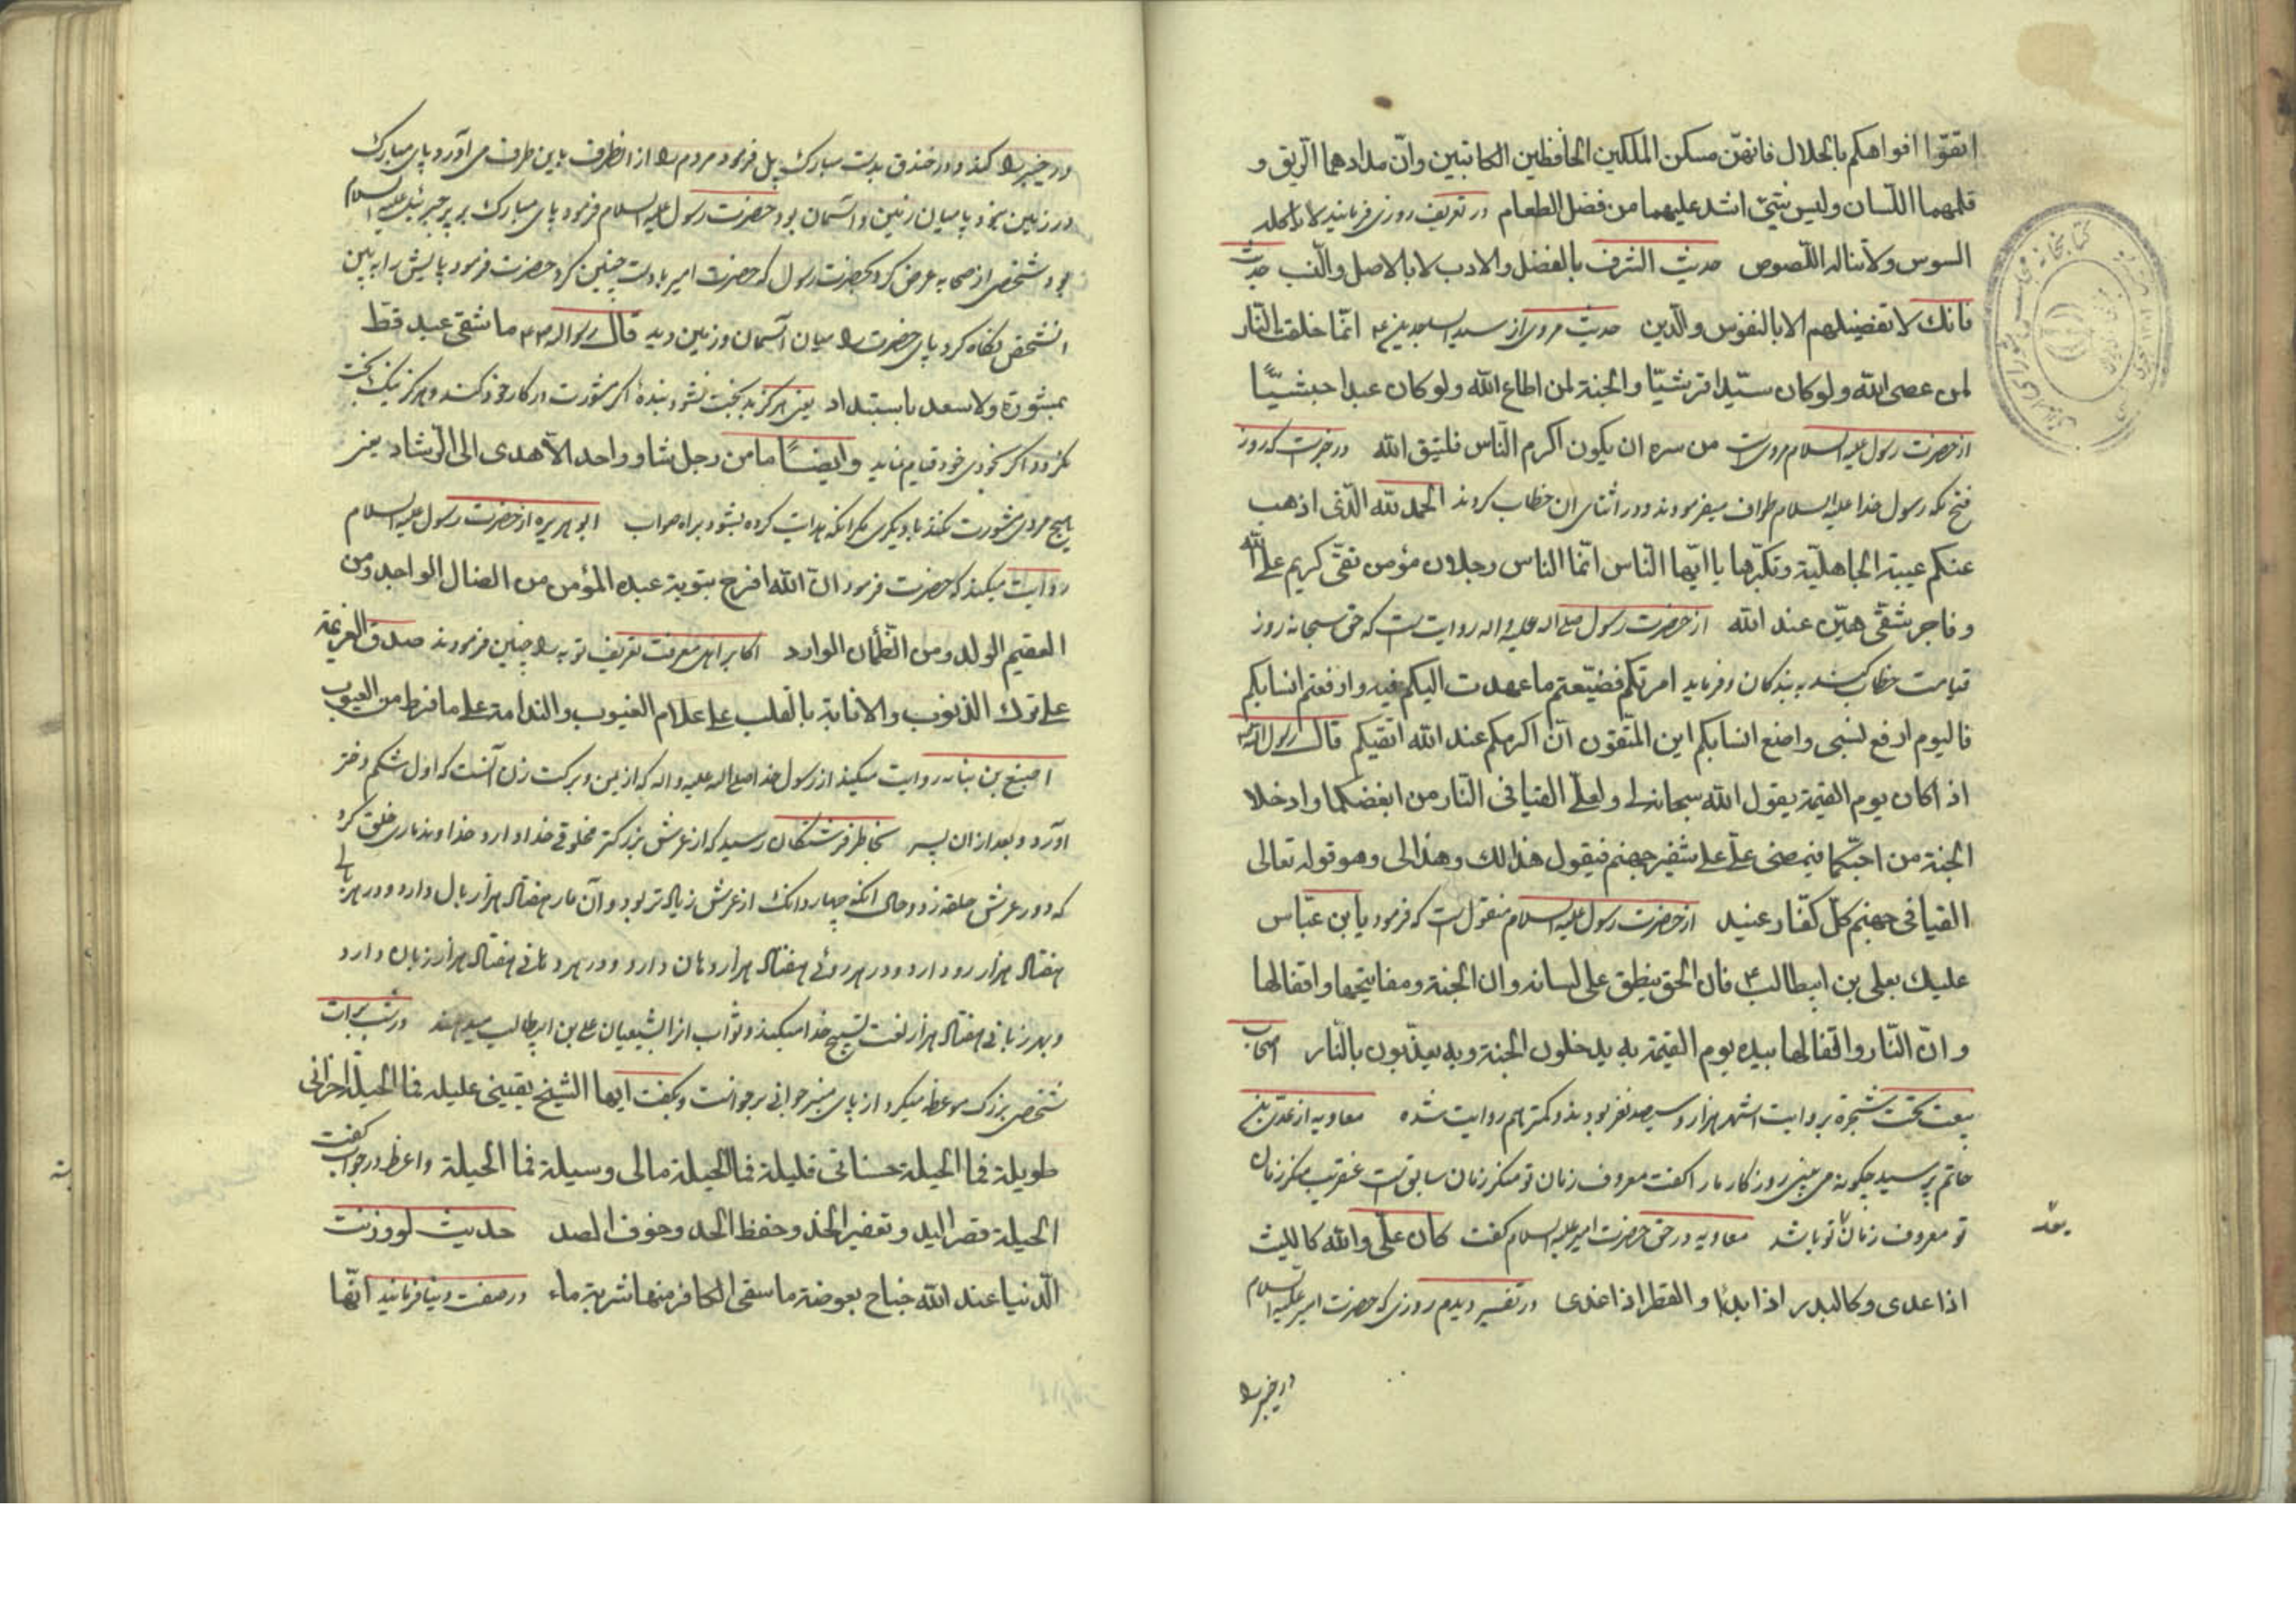 اتقّوا افواهکم بالخلال فانهنّ مسکن الملکین الحافظین الکاتبین وانّ مدادهما الرّیق و
قلمهما اللّسان ولیس شیّ اشد علیهما من فضل الطعام در تعریف روزی فرمایند لا یاکله
السوس ولا یناله اللّصوص حدیث الشرف بالفضل والادب لا بالاصل والنّسب حدیث
فانك لا تفضیلهم الا بالنفوس والدّین حدیث مروی از سید الساجدین ع انّما خلقت النّار
لمن عصی الله ولو کان سیّدا قرشیّا والجنة لمن اطاع الله ولو کان عبدا حبشیّاً
از حضرت رسول علیه السلام مرویست من سره ان یکون اکرم النّاس فلیتق الله در خبرست که روز
فتح مکه رسول خدا علیه السلام طواف میفرمودند و در اثنای ان خطاب کردند الحمد لله الّذی اذهب
عنکم عیبة الجاهلیّة وتکبّرها یا ایّها النّاس انّما الناس رجلان مؤمن تقّی کریم علی الله
و فاجر شقّی هیّن عند الله از حضرت رسول صلی اله علیه واله روایت است که حق سبحانه روز
قیامت خطاب کند به بندکان و فرماید امرتکم فضیّعتم ما عهدت الیکم فیه و ارفعتم انسابکم
فالیوم ارفع نسبی واضع انسابکم این المتّقون انّ اکرمکم عند الله اتقیکم قال رسول الله
اذا کان یوم القیمة یقول الله سبحانه لی ولعلّی القیا فی النّار من ابغضکما وادخلا
الجنة من احبّکما فیمضی علّی علی شفیر جهنم فیقول هذا لك وهذا لی وهو قوله تعالی
القیا فی جهنم کلّ کفّار عنید از حضرت رسول علیه السلام منقول است که فرمود یا بن عبّاس
علیك بعلی بن ابیطالب ع فان الحق ینطق علی لسانه وان الجنة ومفاتیحها واقفالها
و انّ النّار واقفالها بیده یوم القیمة به یدخلون الجنة وبه یعذّبون بالنّار اصحاب
بیعت تحت شجرة بروایت اشهر هزار و سیصد نفر بودند و کمتر هم روایت شده معاویه از عدی بن
حاتم پرسید چکونه می بینی روزکار ما را کفت معروف زمان تو منکر زمان سابق است عنقریب منکر زمان
تو معروف زمان تو باشد معاویه در حق حضرت امیر علیه السلام کفت کان علّی والله کاللیث
بعد
اذا عدی وکالبدر اذا بدا و القطر اذا غدی در تفسیر دیدم روزی که حضرت امیر علیه السلام
در خیبر را
در خیبر را کند و در خندق بدست مبارك پل فرمود مردم را از انطرف باین طرف می آورد پای مبارك
در زمین نبود پا میان زمین و آسمان بود حضرت رسول علیه السلام فرمود پای مبارك بر پر جبرئیل علیه السلام
بود شخصی از صحابه عرض کرد بحضرت رسول که حضرت امیر با دست چنین کرد حضرت فرمود پایش را به بین
انشخص نکاه کرد پای حضرت را میان آسمان و زمین دید قال رسول اله ص ما شقی عبد قط
بمشورة ولا سعد باستبداد یعنی هرکز بدبخت نشود بندهٔ اکر مشورت در کار خود کند و هرکز نیك بخت
نکردد اکر بخودی خود قیام نماید وایضاً ما من رجل شاور واحد الّا هدی الی الرّشاد یعنی
هیچ مردی مشورت نکند با دیکری مکر انکه هدایت کرده بشود براه صواب ابو هریره از حضرت رسول علیه السلام
روایت میکند که حضرت فرمود انّ الله افرح بتوبة عبده المؤمن من الضال الواجد ومن
العقیم الولد ومن الظّمأن الوارد اکابر اهل معرفت تعریف توبه را چنین فرمودند صدق العزیمة
علی ترك الذنوب والانابة بالقلب علی علّام الغیوب والندامة علی ما فرط من العیوب
اصبغ بن نباته روایت میکند از رسول خدا صلی اله علیه واله که از یمن و برکت زن آنست که اول شکم دختر
آورد و بعد از ان پسر بخاطر فرشتکان رسید که از عرش بزرکتر مخلوقی خدا دارد خداوند ماری خلق کرد
که دور عرش حلقه زد و حال انکه چهار دانك از عرش زیاد تر بود و آن مار هفتاد هزار بال دارد و در هر بالی
هفتاد هزار رو دارد و در هر روئی هفتاد هزار دهان دارد و در هر دهانی هفتاد هزار زبان دارد
و بهر زبانی هفتاد هزار لغت تسبیح خدا میکند و ثواب انرا بشیعیان علی بن ابیطالب میدهند در شب برات
شخصی بزرك موعظه میکرد از پای منبر جوانی برخواست و بکفت ایها الشیخ یقینی علیله فما الحیلة احزانی
طویلة فما الحیلة حسناتی قلیلة فما الحیلة مالی وسیلة فما الحیلة واعظ در جواب کفت
الحیلة قصر الید و تعفیر الخد و حفظ الحد وخوف الصد حدیث لو وزنت
الّدنیا عند الله جناح بعوضة ما سقی الکافر منها شربة ماء در صفت دنیا فرمایند انّها